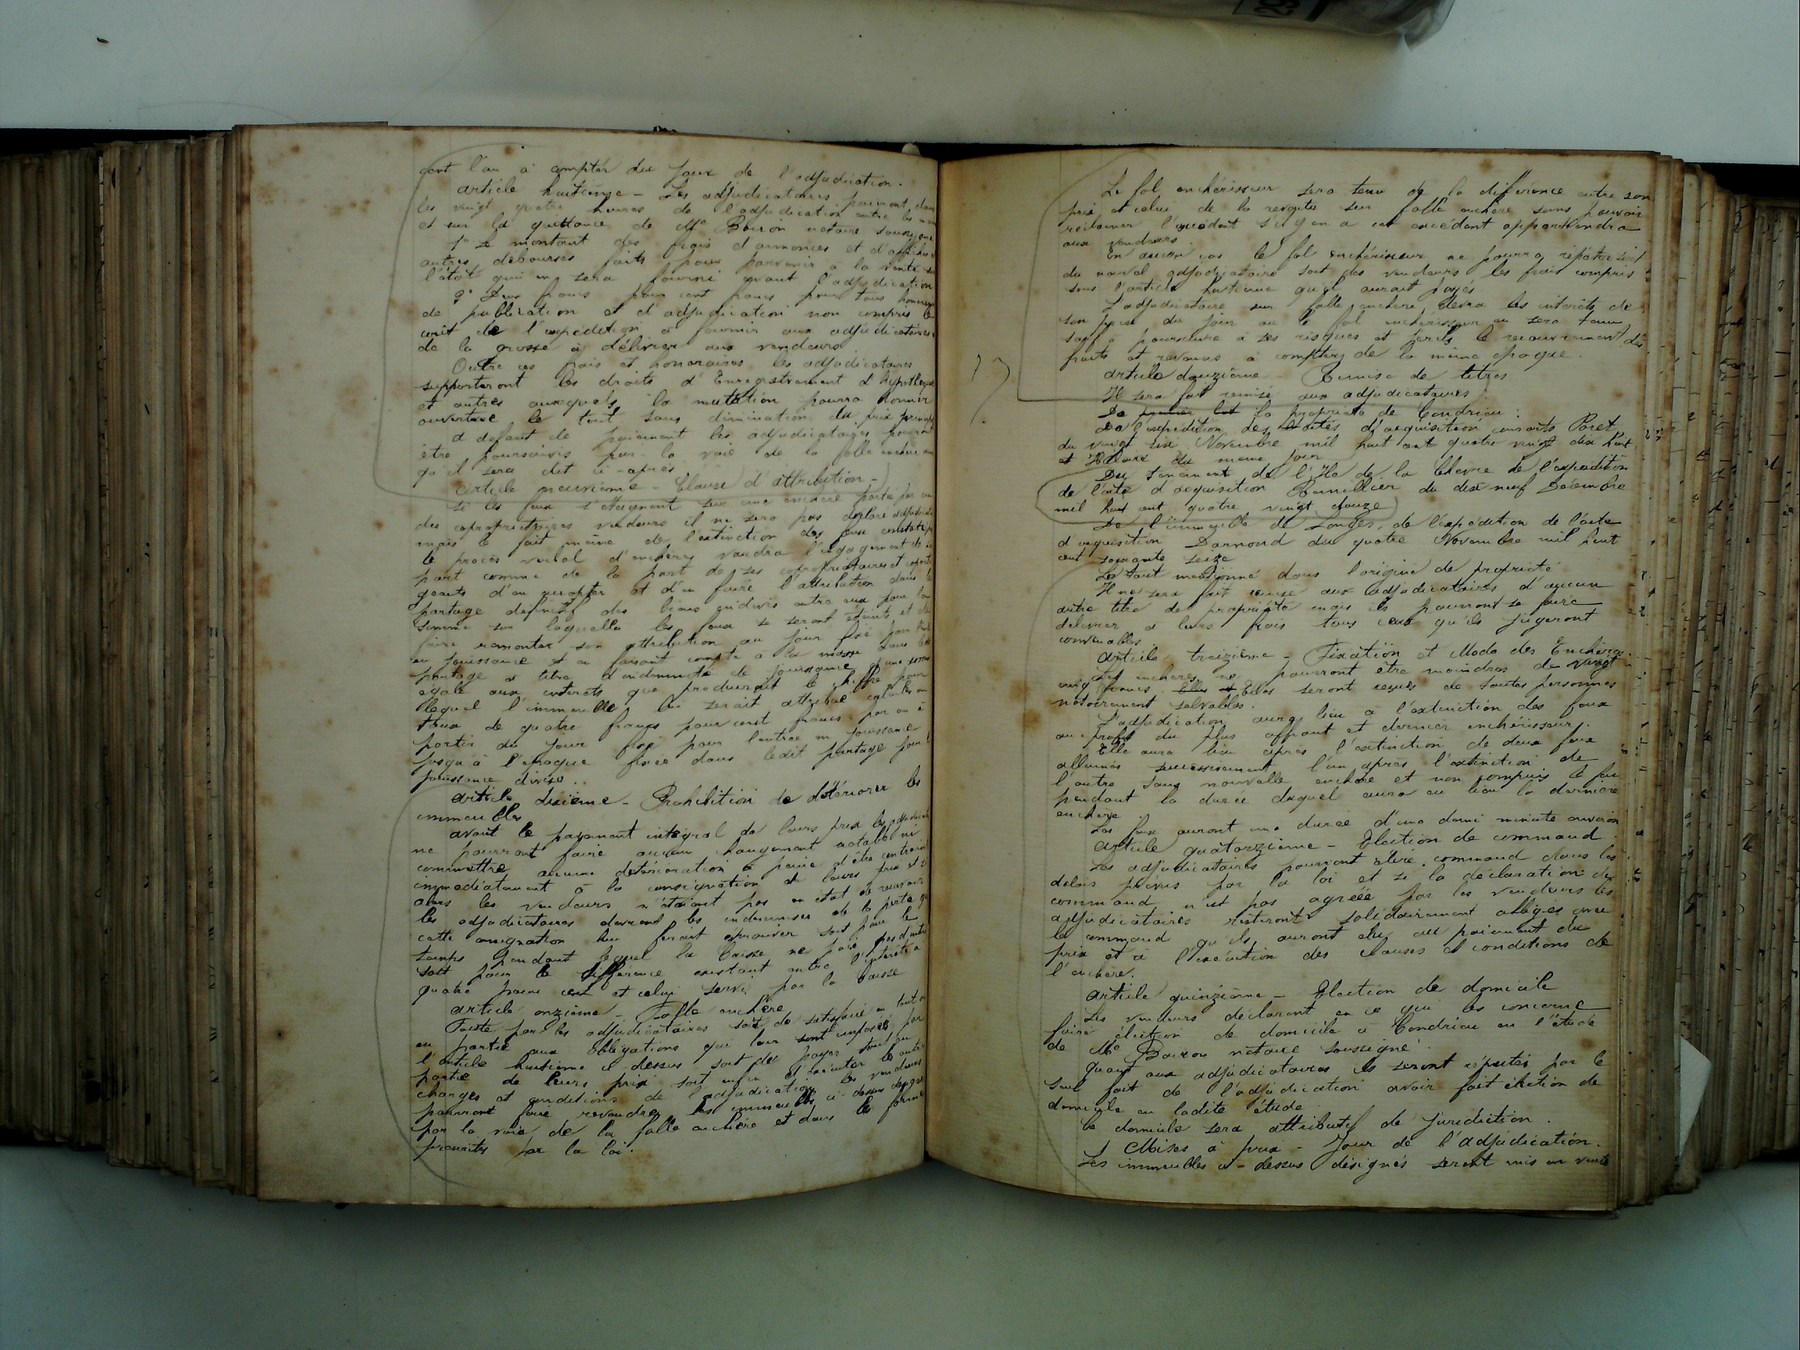 cent l'an à compter du jour de l'adjudication.
article huitième – Les adjudicataires paieront, dans
les vingt quatre heures de l'adjudication entre les mains
et sur la quittance de Me Boiron notaire soussigné
1° Le montant des frais d'annonces et d'affiches
autres déboursés faits pour parvenir à la vente
l'état qui en sera fourni avant l'adjudication
2° francs pour cent francs pour tous honoraires
de publication et d'adjudication non compris le
coût de l'expédition à fournir aux adjudicataires
de la grosse à délivrer aux vendeurs
Outre ces frais et honoraires les adjudicataires
supporteront les droits d'Enregistrement d'hypothèque
et autres auxquels la mutation pourra donner
ouverture le tout sans diminution du prix principal
à défaut de paiement les adjudicataires pourront
être poursuivis par la voie de la folle enchère
qu'il sera dit ci-après
article neuvième – Clause d'attribution –
Si les feux s'éteignent sur une enchère portée par un
des copropriétaires vendeurs il ne sera pas déclaré adjudicataire
mais le fait même de l'extinction des feux constaté
le procès verbal d'enchère vaudra l'engagement de sa
part comme de la part de ses copropriétaires
geants d'en accepter et d'en faire l'attribution dans le
partage définitif des biens indivis entre eux pour la
somme sur laquelle les feux se seront éteints et de
faire remonter son attribution au jour fixé pour
en jouissance et en faisant compte à la masse dans le
partage à titre d'indemnité de jouissance d'une somme
égale aux intérêts que produirait le chiffre pour
lequel l'immeuble lui serait attribué calculés au
taux de quatre francs pour cent francs par an à
partir du jour fixé pour l'entrée en jouissance
jusqu'à l'époque fixée dans ledit partage pour la
jouissance divise.
article dixième – Prohibition de détériorer les
immeubles
avant le payement intégral de leurs prix les adjudicataires
ne pourront faire aucun changement notable ni
commettre aucune détérioration à peine d'être contraints
immédiatement à la consignation de leurs prix et si
alors les vendeurs n'étaient pas en état de recevoir
les adjudicataires devront les indemniser de la perte que
cette consignation leur ferait éprouver soit pour le
temps pendant lequel la Caisse ne paie pas d'intérêts
soit pour la différence existant entre l'intérêt à
quatre pour cent et celui servi par la Caisse
article onzième – Folle enchère
Faute par les adjudicataires soit de satisfaire en tout ou
en partie aux obligations qui leur sont imposées par
l'article huitième ci dessus soit de payer tout ou
partie de leurs prix soit enfin d'exécuter les autres
charges et conditions de l'adjudication les vendeurs
pourront faire revendre les immeubles ci-dessus désignés
par la voie de la folle enchère et dans les formes
prescrites par la loi.
Le fol enchérisseur sera tenu de la différence entre son
prix et celui de la revente sur folle enchère sans pouvoir
réclamer l'excédant s'il y en a cet excédant appartiendra
aux vendeurs.
En aucun cas le fol enchérisseur ne pourra répéter soit
du nouvel adjudicataire soit des vendeurs les frais compris
sous l'article huitième qu'il aurait payés
L'adjudicataire sur folle enchère devra les intérêts de
son prix du jour où le fol enchérisseur en sera tenu
sauf à poursuivre à ses risques et périls le recouvrement des
fruits et revenus à compter de la même époque.
article douzième – Remise de titres
Il sera fait remise aux adjudicataires.
De premier lot la propriété de Condrieu :
De l'expédition des actes d'acquisition Poret
du vingt six Novembre mil huit cent quatre vingt dix huit
et du même jour
Du Tènement de l'Ile de la Chèvre de l'expédition
de l'acte d'acquisition Rumillier du dix neuf Décembre
mil huit cent quatre vingt douze
De l'immeuble de Longes, de l'expédition de l'acte
d'acquisition Darnoud du quatre Novembre mil huit
cent soixante seize
Le tout mentionné dans l'origine de propriété
Il ne sera fait remise aux adjudicataires d'aucun
autre titre de propriété mais ils pourront se faire
délivrer à leurs frais tous ceux qu'ils jugeront
convenables
article treizième – Fixation et Mode des Enchères
Les enchères ne pourront être moindres de vingt
cinq francs. Elles et Elles seront reçues de toutes personnes
notoirement solvables.
L'adjudication aura lieu à l'extinction des feux
au profit du plus offrant et dernier enchérisseur.
Elle aura lieu après l'extinction de deux feux
allumés successivement l'un après l'extinction de
l'autre sans nouvelle enchère et non compris le feu
pendant la durée duquel aura eu lieu la dernière
enchère
Les feux auront une durée d'une demi minute environ
article quatorzième – Election de command
Les adjudicataires pourront élire command dans les
délais prévus par la loi et si la déclaration de
command n'est pas agréée par les vendeurs les
adjudicataires resteront solidairement obligés avec
le command qu'ils auront élu au paiement du
prix et à l'exécution des clauses et conditions de
l'enchère.
article quinzième – Election de domicile
Les vendeurs déclarent en ce qui les concerne
faire élection de domicile à Condrieu en l'étude
de Me Boiron notaire soussigné
Quant aux adjudicataires ils seront réputés par le
seul fait de l'adjudication avoir fait élection de
domicile en ladite étude
Ce domicile sera attributif de juridiction.
Mises à prix – Jour de l'adjudication.
Les immeubles ci-dessus désignés seront mis en vente